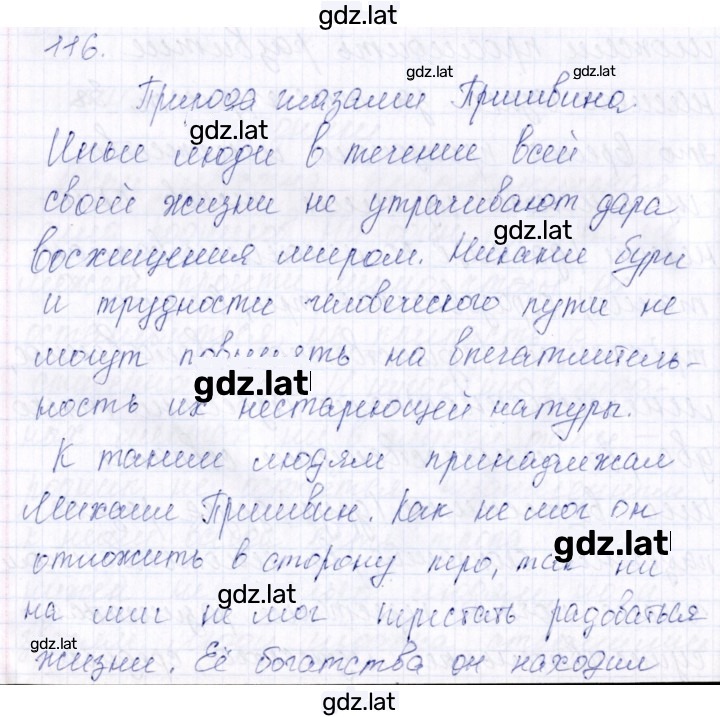 gdz.lat
116.
gdz.lat
gdz.lat
Природа глазами Пришвина.
gdz.lat
Иные люди в течение всей
gdz.lat
своей жизни не утрачивают дара
gdz.lat
восхищения миром. Никакие бури
и трудности человеческого пути не
могут на впечатлитель-
gdz.lat
ность их нестареющей натуры.
К таким людям принадлежал
Михаил Пришвин. Как не мог он
gdz.lat
отложить в сторону перо, так ни
gdz.lat
на миг не мог перестать радоваться
gdz.lat
жизни. Её богатства он находил
gdz.lat